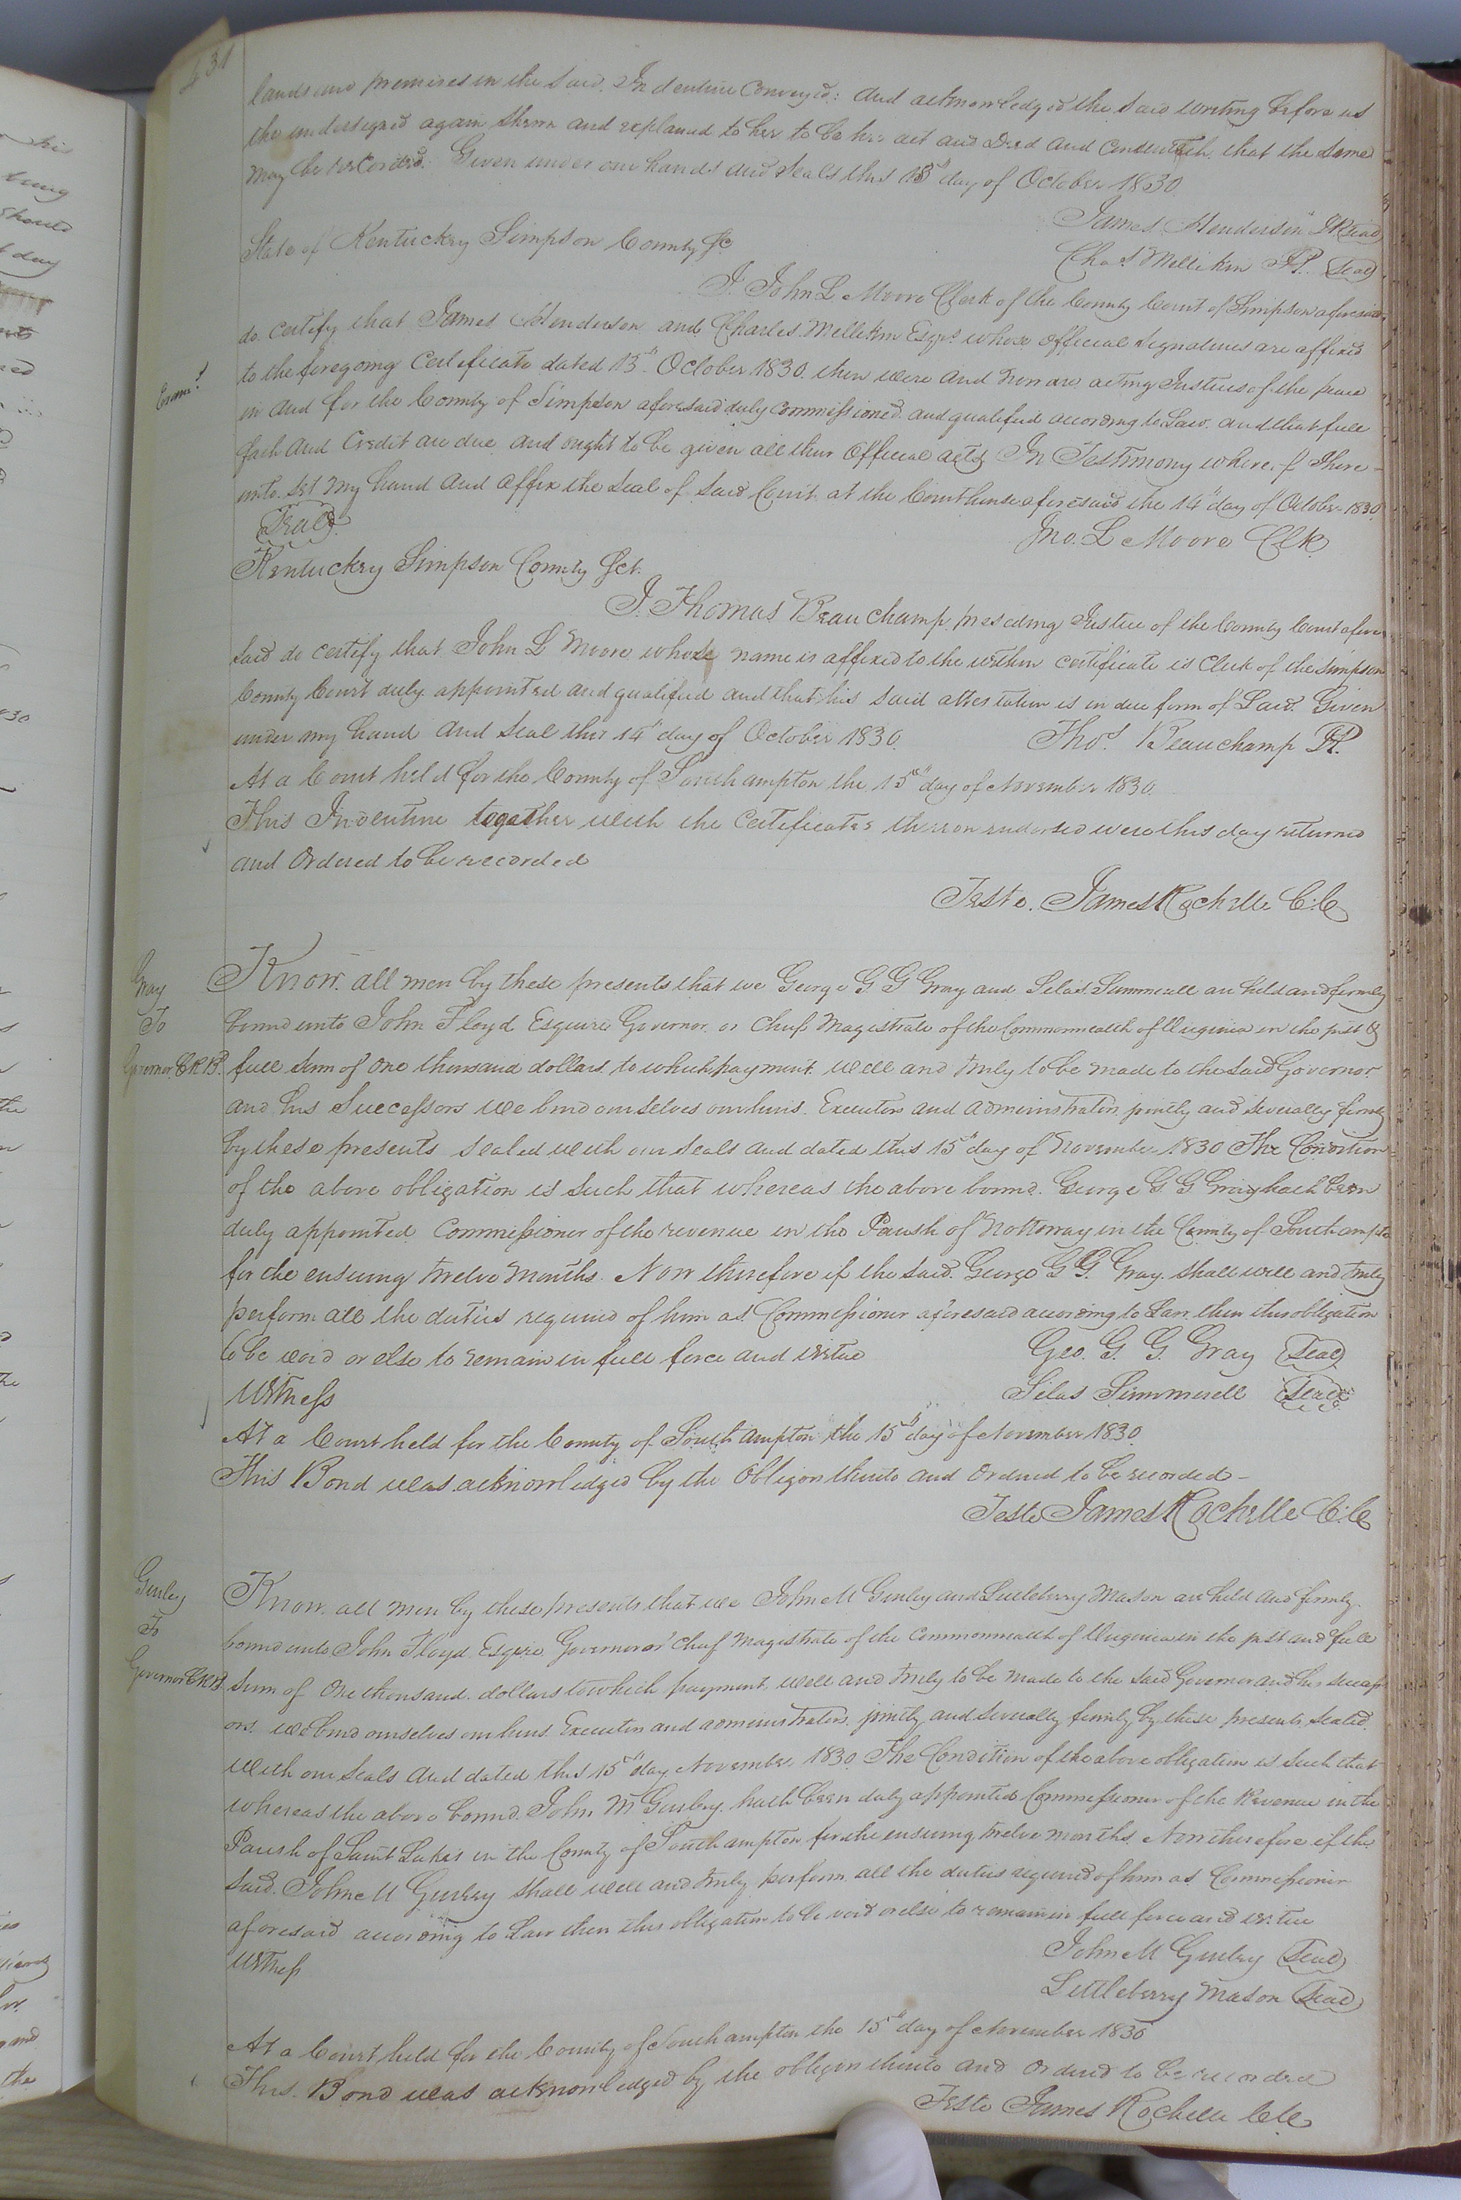 431
lands and premises in the said Indenture Conveyed: and acknowledged the said writing before us
the undersigned again shewn and explained to her to be her act and Deed and Consenteth that the same
may be recorded. Given under our hands and seals this 13th day of October 1830
James Henderson JP Seal
State of Kentucky Simpson County Sc
Chas Mellikin JP. Seal
I. John L Moore Clerk of the County Court of Simpson aforesaid
do certify that James Henderson and Charles Mellikin Esqrs whose official signatures are affixed
to the foregoing Certificate dated 13th October 1830. then were and now are acting Justices of the peace
Exam.d
in and for the County of Simpson aforesaid duly commissioned and qualified according to Law. and that full
faith and Credit are due and ought to be given all their Official acts In Testimony whereof I here-
unto set my hand and affix the seal of said Court at the Courthouse aforesaid the 14th day of October 1830
Seal
Jno. L Moore Clk
Kentucky Simpson County Sct.
I. Thomas Beauchamp. preseding Justice of the County Court afore
said do certify that John L Moore whose name is affixed to the within certificate is Clerk of the Simpson
County Court duly appointed and qualified and that his said attestation is in due form of Law. Given
under my hand and seal this 14th day of October 1830.
Thos. Beauchamp JP.
At a Court held for the County of Southampton the 15th day of November 1830.
This Indenture together with the Certificates thereon endorsed were this day returned
and Ordered to be recorded
Teste. James Rochelle C.C
Gray
To
Governor &C R B.
Know all men by these presents that we George G G Gray and Silas Summerell are held and firmly
bound unto John Floyd Esquire Governor or Chief Magistrate of the Commonwealth of Virginia in the just &
full sum of One thousand dollars to which payment well and truly to be made to the said Governor
and his Successors we bind ourselves our heirs. Executors and administrators jointly and severally firmly
by these presents sealed with our seals and dated this 15th day of November 1830 The Condition
of the above obligation is such that whereas the above bound. George G G Gray hath been
duly appointed Commissioner of the revenue in the Parish of Nottoway in the County of Southampton
for the ensuing twelve Months. Now therefore if the said George G G. Gray shall well and truly
perform all the duties required of him as Commissioner aforesaid according to Law. then this obligation
to be void or else to remain in full force and virtue
Geo. G. G. Gray Seal
Witness
Silas Summerell Seal
At a Court held for the County of Southampton the 15th day of November 1830.
This Bond was acknowledged by the Obligors thereto and Ordered to be recorded-
Teste James Rochelle C.C
Gurley
To
Governor &C R B
Know all men by these presents that we John M Gurley and Littleberry Mason are held and firmly
bound unto John Floyd Esqire Governor or Chief Magistrate of the Commonwealth of Virginia in the just and full
Sum of One thousand dollars to which payment well and truly to be made to the said Governor and his success
ors we bind ourselves our heirs Executors and administrators jointly and severally firmly by these presents sealed.
with our seals and dated this 15th day November 1830 The Condition of the above obligation is such that
whereas the above bound. John M Gurley hath been duly appointed Commissioner of the Revenue in the
Parish of Saint Lukes in the County of Southampton for the ensuing twelve months Now therefore if the
said. John M Gurley shall well and truly perform all the duties required of him as Commissioner
aforesaid according to Law then this obligation to be void or else to remain in full force and virtue
Witness
John M Gurley Seal
Littleberry Mason Seal
At a Court held for the County of Southampton the 15th day of November 1830
This Bond was acknowledged by the obligors thereto and Ordered to be recorded
Teste James Rochelle C.C.